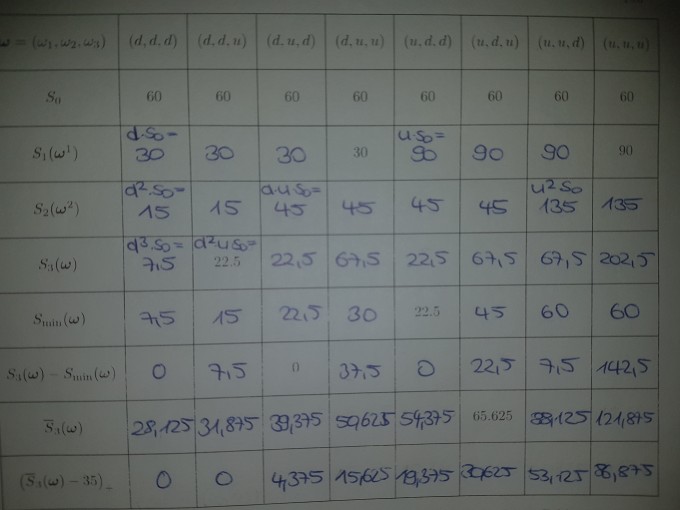 ω = (ω₁, ω₂, ω₃) (d, d, d) (d, d, u) (d, u, d) (d, u, u) (u, d, d) (u, d, u) (u, u, d) (u, u, u)
S₀ 60 60 60 60 60 60 60 60
d·S₀= u·S₀=
S₁(ω¹) 30 30 30 30 90 90 90 90
d²·S₀= d·u·S₀= u²·S₀
S₂(ω²) 15 15 45 45 45 45 135 135
d³·S₀= d²uS₀=
S₃(ω) 7,5 22.5 22,5 67,5 22,5 67,5 67,5 202,5
Smin(ω) 7,5 15 22,5 30 22.5 45 60 60
S₃(ω) − Smin(ω) 0 7,5 0 37,5 0 22,5 7,5 142,5
S̅₃(ω) 28,125 31,875 39,375 50,625 54,375 65.625 88,125 121,875
(S̅₃(ω) − 35)₋ 0 0 4,375 15,625 19,375 30,625 53,125 86,875